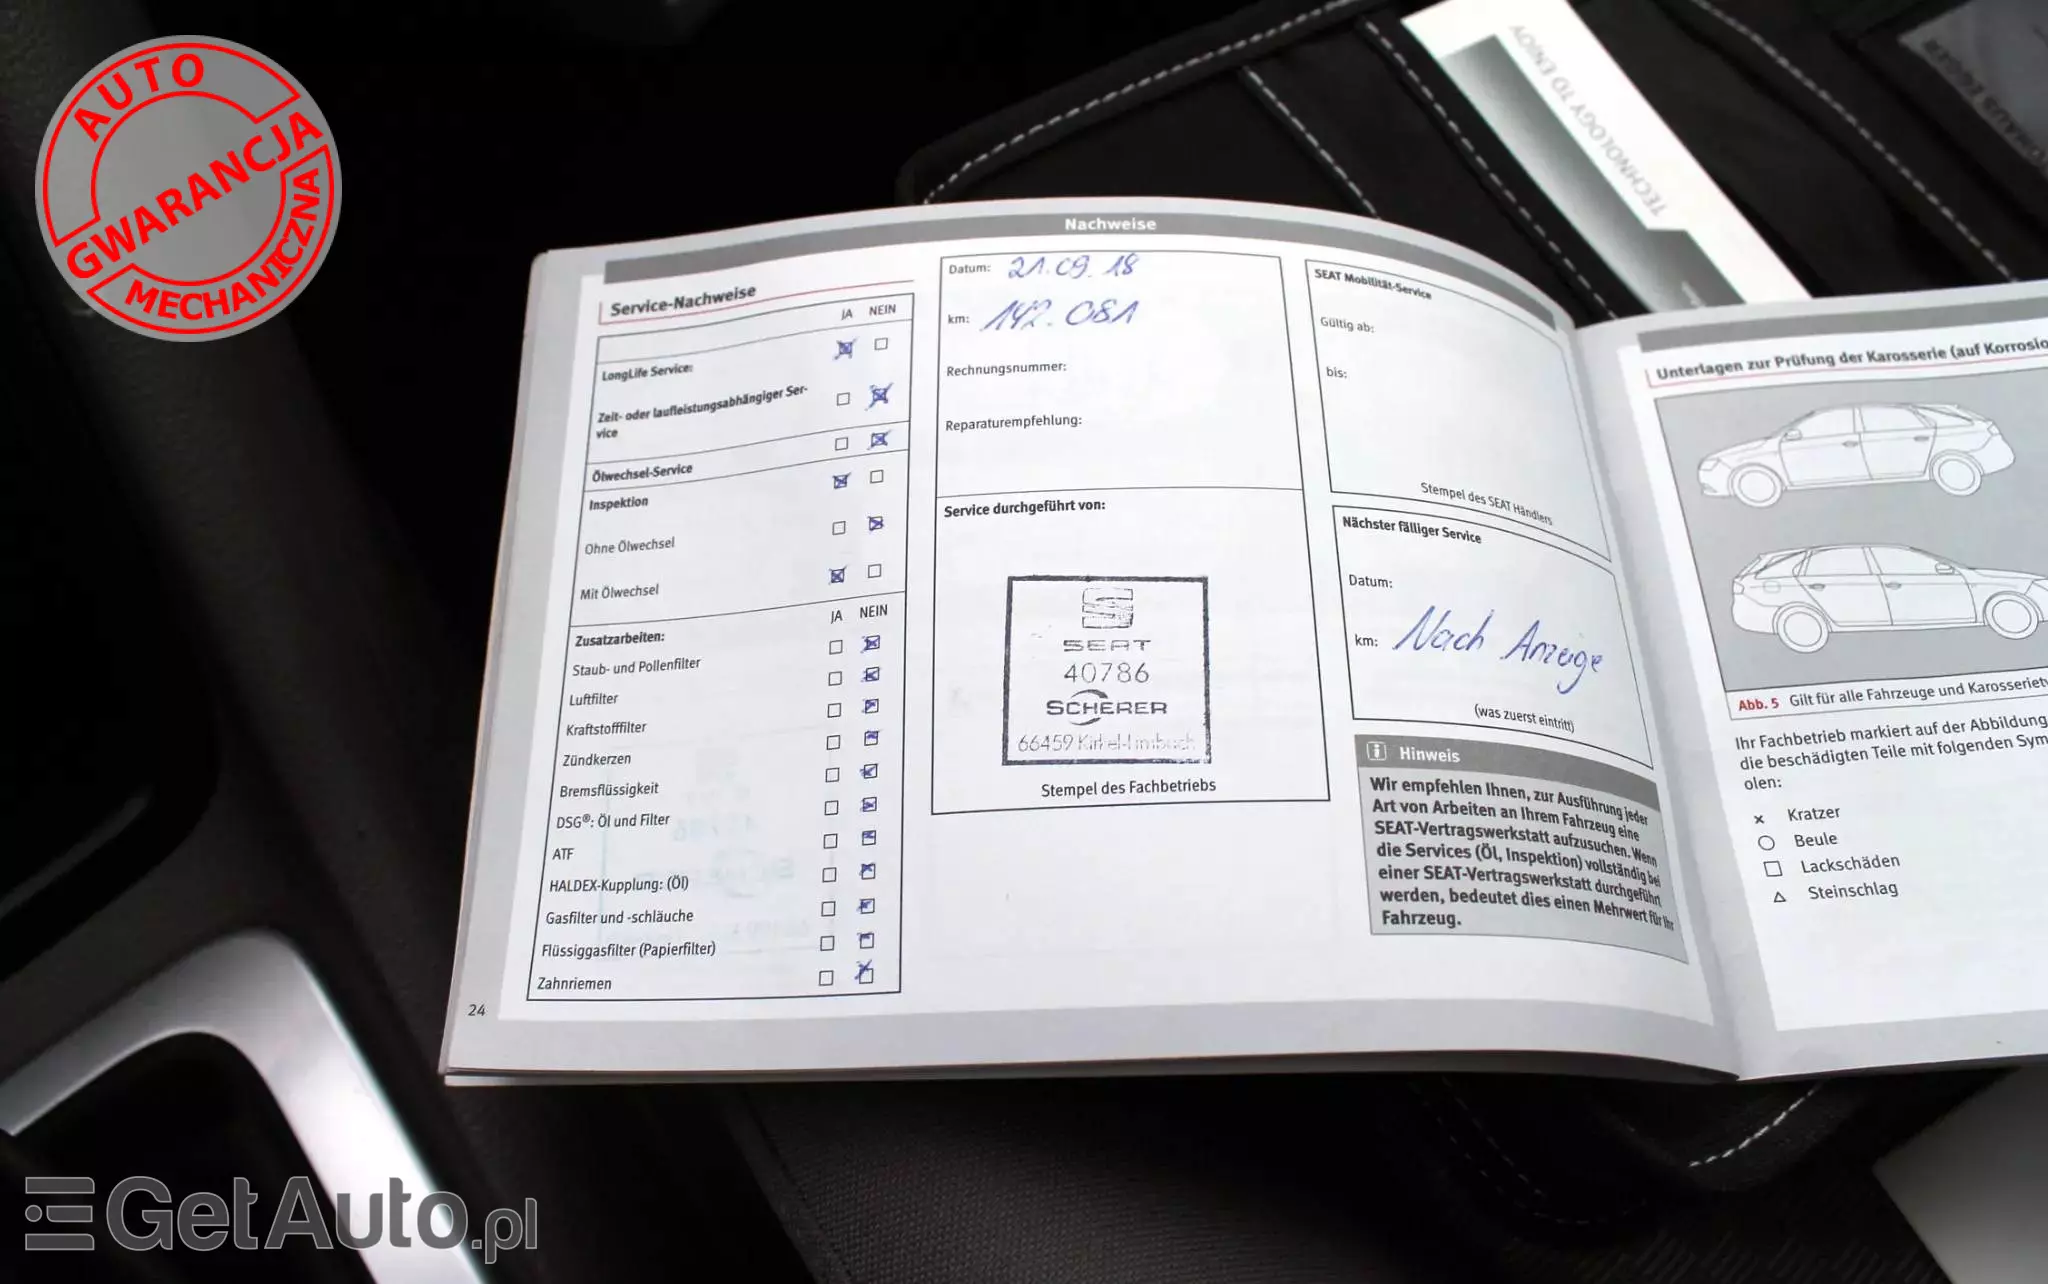 AUTO
GWARANCJA
MECHANICZNA
TECHNOLOGY TO ENJOY
Nachweise
Service-Nachweise
JA NEIN
LongLife Service:
Zeit- oder laufleistungsabhängiger Ser-
vice
Ölwechsel-Service
Inspektion
Ohne Ölwechsel
Mit Ölwechsel
JA NEIN
Zusatzarbeiten:
Staub- und Pollenfilter
Luftfilter
Kraftstofffilter
Zündkerzen
Bremsflüssigkeit
DSG®: Öl und Filter
ATF
HALDEX-Kupplung: (Öl)
Gasfilter und -schläuche
Flüssiggasfilter (Papierfilter)
Zahnriemen
24
Datum: 21.09.18
km: 142.081
Rechnungsnummer:
Reparaturempfehlung:
Service durchgeführt von:
SEAT
40786
SCHERER
66459 Kirkel-Limbach
Stempel des Fachbetriebs
SEAT Mobilität-Service
Gültig ab:
bis:
Stempel des SEAT Händlers
Nächster fälliger Service
Datum:
km: Nach Anzeige
(was zuerst eintritt)
Hinweis
Wir empfehlen Ihnen, zur Ausführung jeder
Art von Arbeiten an Ihrem Fahrzeug eine
SEAT-Vertragswerkstatt aufzusuchen. Wenn
die Services (Öl, Inspektion) vollständig bei
einer SEAT-Vertragswerkstatt durchgeführt
werden, bedeutet dies einen Mehrwert für Ihr
Fahrzeug.
Unterlagen zur Prüfung der Karosserie (auf Korrosio
Abb. 5 Gilt für alle Fahrzeuge und Karosseriety
Ihr Fachbetrieb markiert auf der Abbildung
die beschädigten Teile mit folgenden Sym
olen:
Kratzer
Beule
Lackschäden
Steinschlag
GetAuto.pl